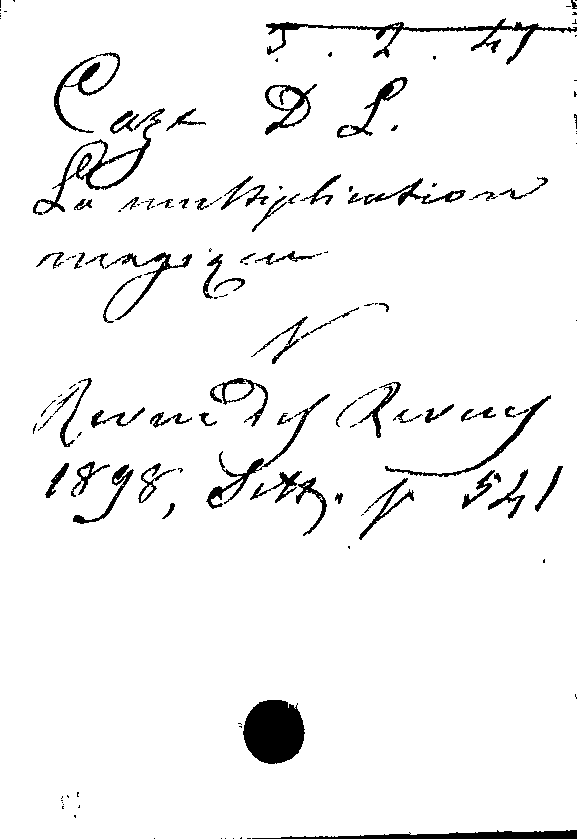 5.2.41
Caze D L.
La multiplication
magique
V
Revue des Revues
1898, Sett. p 541